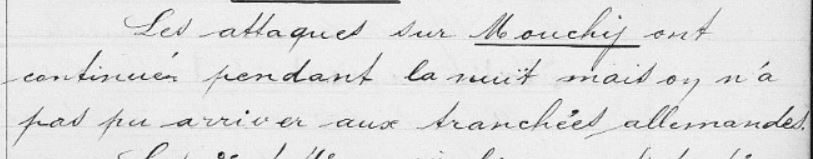 Les attaques sur Mouchy ont
continués pendant la nuit mais on n'a
pas pu arriver aux tranchées allemandes.